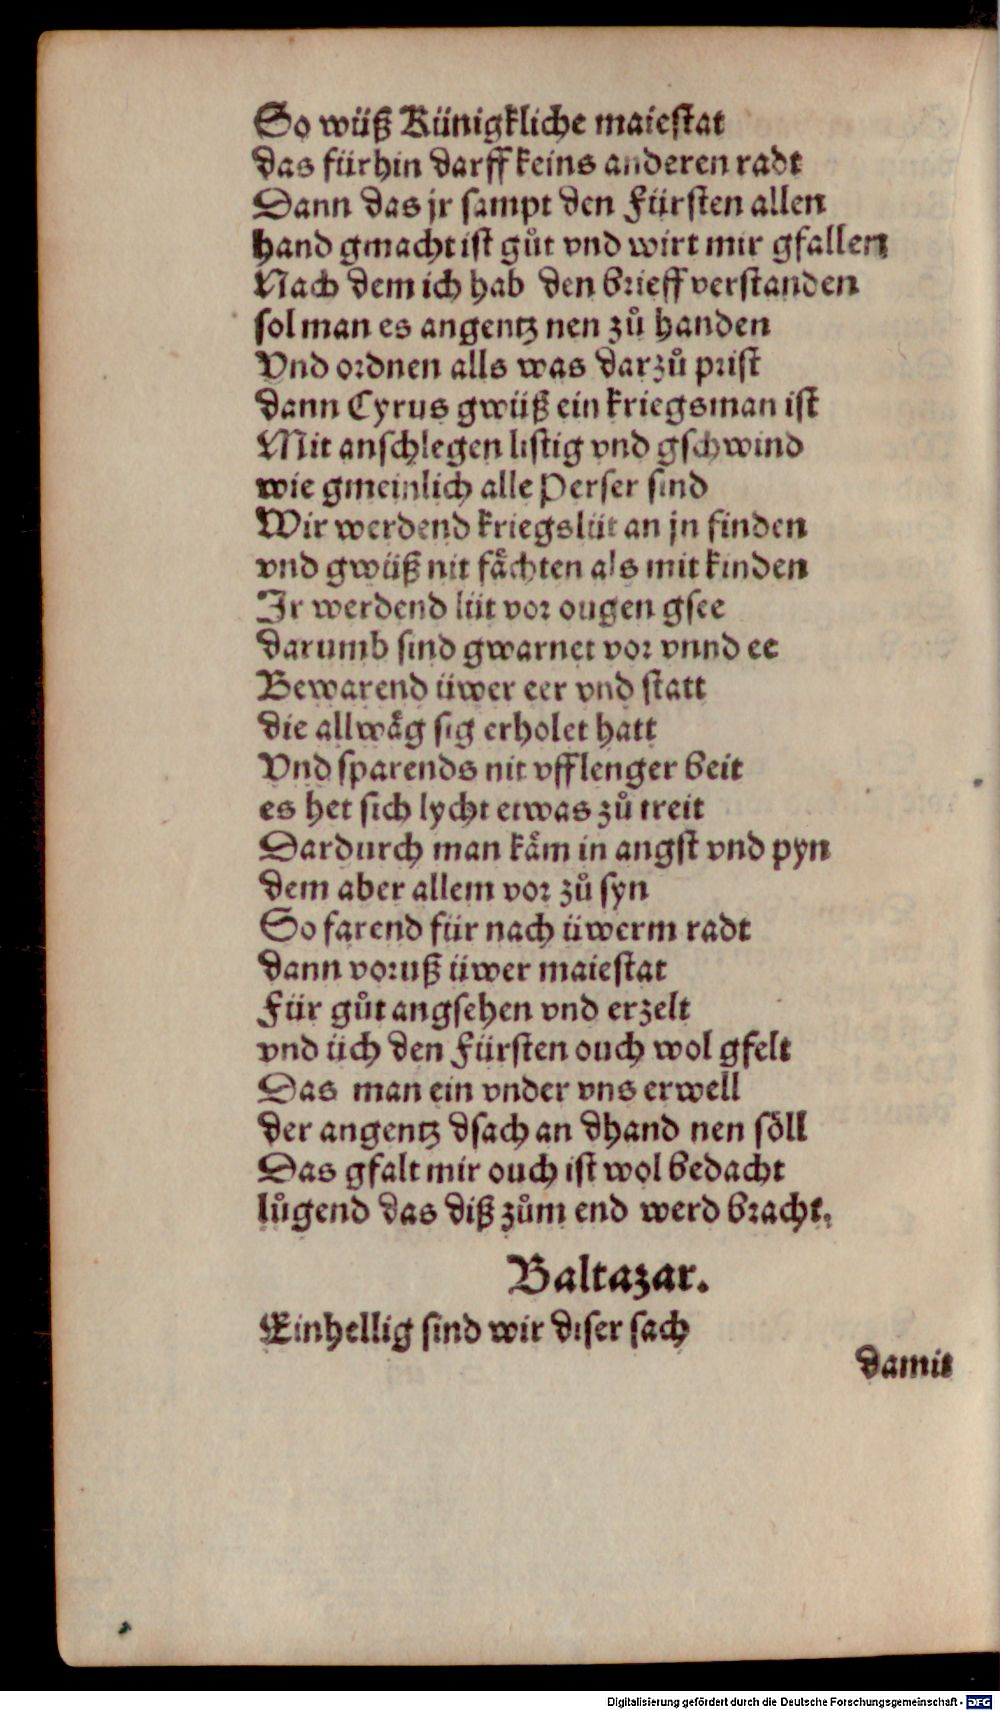 So wüß Künigkliche maiestat
das fürhin darff keins anderen radt
Dann das jr sampt den Fürsten allen
hand gmacht ist gůt vnd wirt mir gfallen
Nach dem ich hab den brieff verstanden
sol man es angentz nen zů handen
Vnd ordnen alls was darzů prist
dann Cyrus gwüß ein kriegsman ist
Mit anschlegen listig vnd gschwind
wie gmeinlich alle Perser sind
Wir werdend kriegslüt an jn finden
vnd gwüß nit fächten als mit kinden
Ir werdend lüt vor ougen gsee
darumb sind gwarnet vor vnnd ee
Bewarend üwer eer vnd statt
die allwäg sig erholet hatt
Vnd sparends nit vff lenger beit
es het sich lycht etwas zů treit
Dardurch man käm in angst vnd pyn
dem aber allem vor zů syn
So farend für nach üwerm radt
dann voruß üwer maiestat
Für gůt angsehen vnd erzelt
vnd üch den Fürsten ouch wol gfelt
Das man ein vnder vns erwell
der angentz dsach an dhand nen söll
Das gfalt mir ouch ist wol bedacht
lůgend das diß zům end werd bracht.
Baltazar.
Einhellig sind wir diser sach
damit
Digitalisierung gefördert durch die Deutsche Forschungsgemeinschaft - DFG